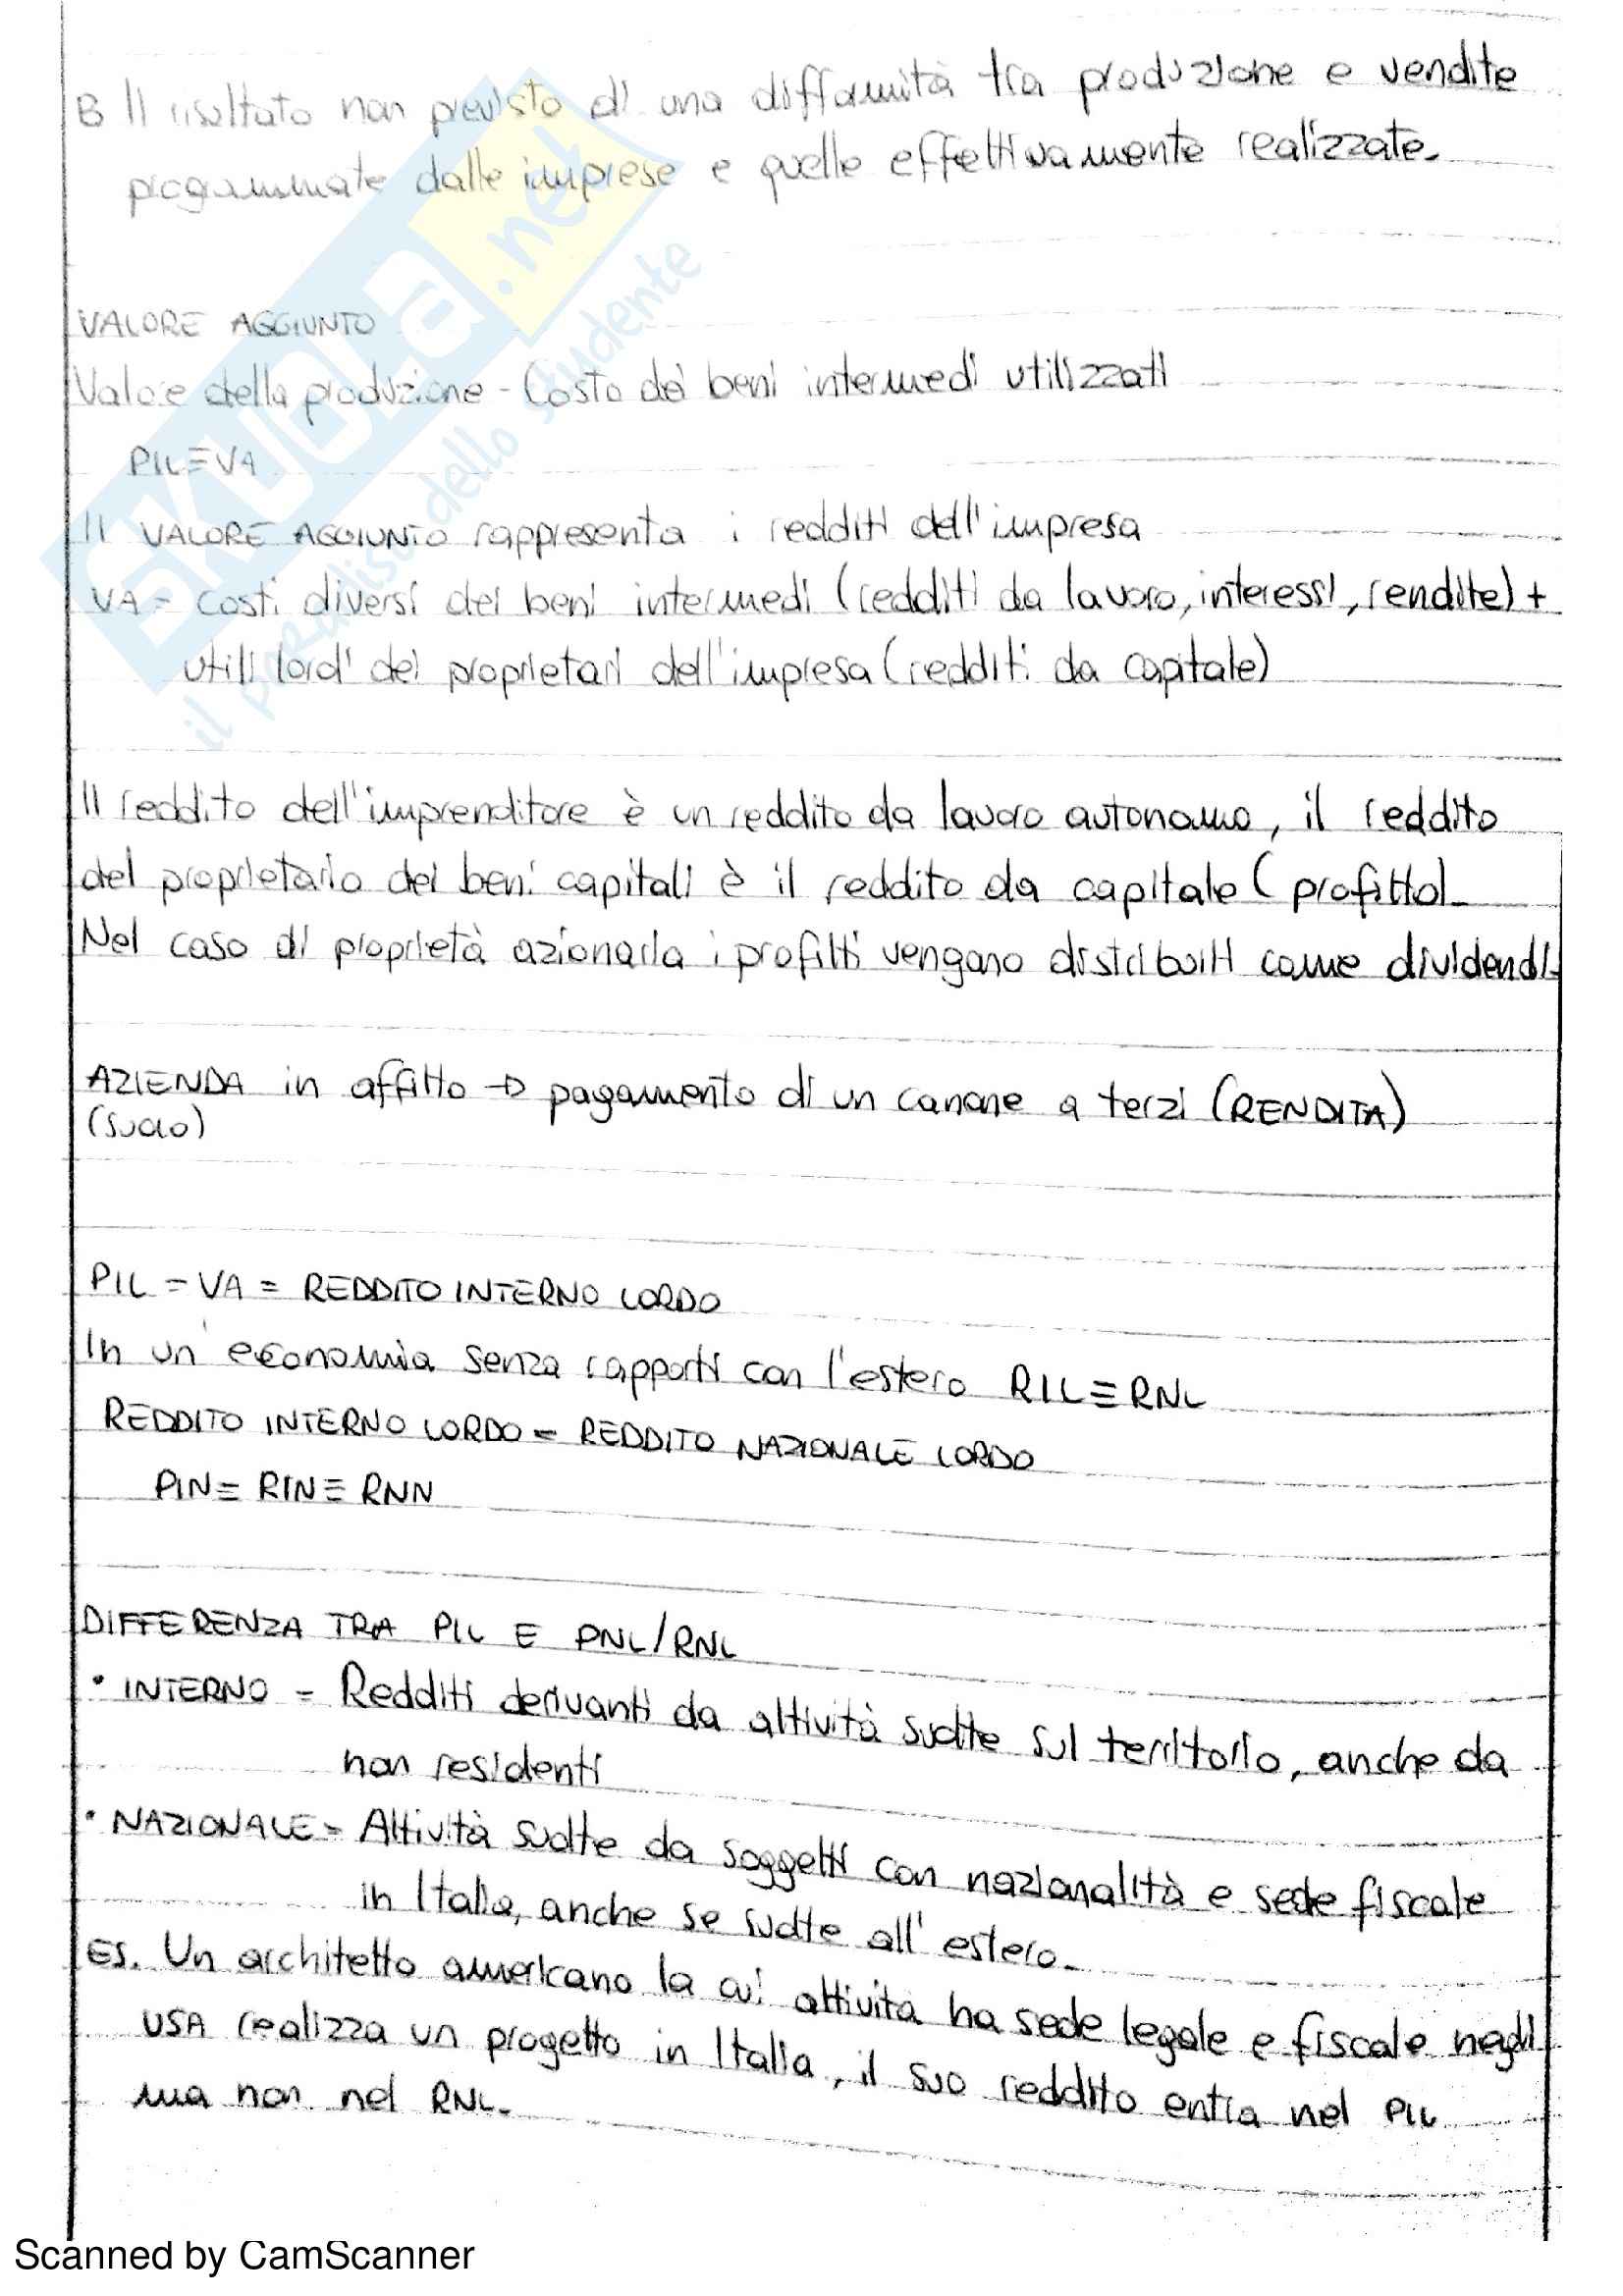 B Il risultato non previsto di una difformità tra produzione e vendite
programmate dalle imprese e quelle effettivamente realizzate.
VALORE AGGIUNTO
Valore della produzione - Costo dei beni intermedi utilizzati
PIL ≡ VA
Il VALORE AGGIUNTO rappresenta i redditi dell'impresa
VA = costi diversi dei beni intermedi (redditi da lavoro, interessi, rendite) +
utili lordi dei proprietari dell'impresa (redditi da capitale)
Il reddito dell'imprenditore è un reddito da lavoro autonomo, il reddito
del proprietario dei beni capitali è il reddito da capitale (profitto).
Nel caso di proprietà azionaria i profitti vengono distribuiti come dividendi.
AZIENDA in affitto → pagamento di un canone a terzi (RENDITA)
(suolo)
PIL = VA = REDDITO INTERNO LORDO
In un'economia senza rapporti con l'estero RIL ≡ RNL
REDDITO INTERNO LORDO = REDDITO NAZIONALE LORDO
PIN ≡ RIN ≡ RNN
DIFFERENZA TRA PIL E PNL/RNL
• INTERNO = Redditi derivanti da attività svolte sul territorio, anche da
non residenti
• NAZIONALE = Attività svolte da soggetti con nazionalità e sede fiscale
in Italia, anche se svolte all'estero.
ES. Un architetto americano la cui attività ha sede legale e fiscale negli
USA realizza un progetto in Italia, il suo reddito entra nel PIL
ma non nel RNL.
SKUOLA.net
il paradiso dello studente
Scanned by CamScanner